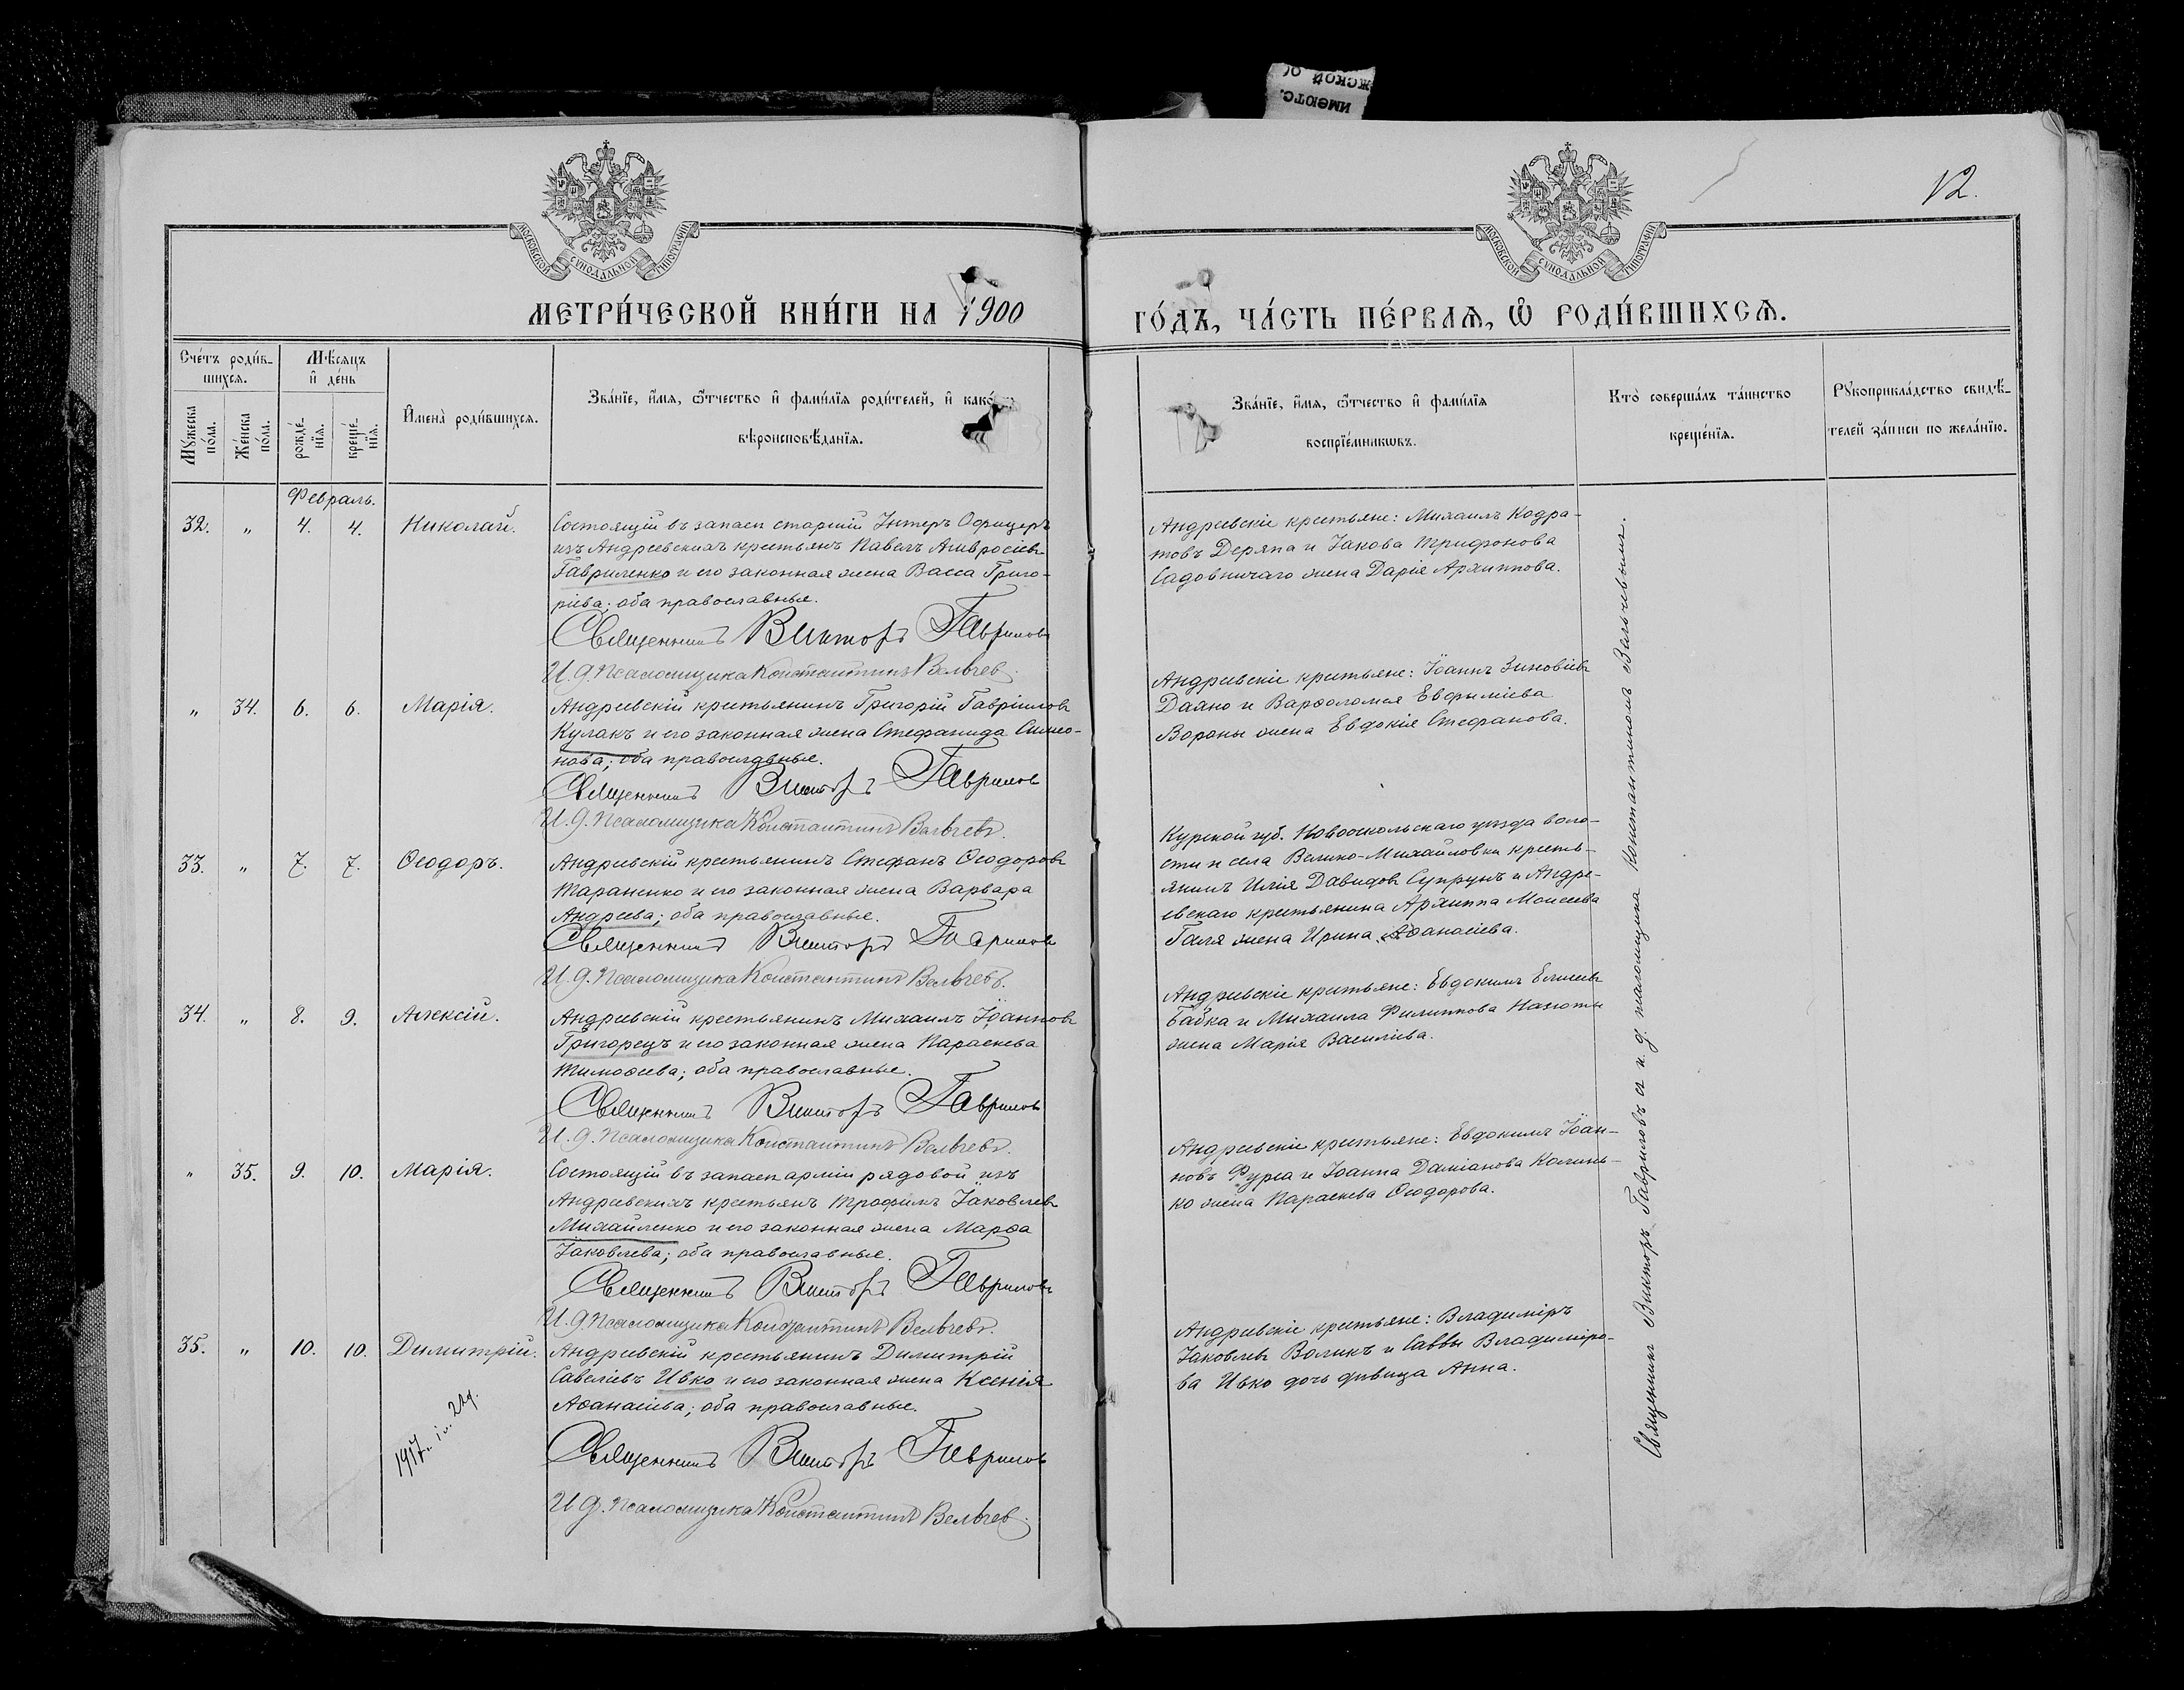 ИМѢЮТС.
ЖСКОЙ О
12.
МОСКОВСКОЙ СѴНОДАЛЬНОЙ ТИПОГРАФІИ
МОСКОВСКОЙ СѴНОДАЛЬНОЙ ТИПОГРАФІИ
МЕТРИ́ЧЕСКОЙ КНИ́ГИ НА 1900
ГО́ДЪ, ЧА́СТЬ ПЕ́РВАѦ, Ѡ҆ РОДИ́ВШИХСѦ.
Сче́тъ роди́в-
шихсѧ.
Мѣ́сѧцъ
и҆ де́нь
Мꙋ́жеска
по́ла.
Же́нска
по́ла.
рожде́-
нїѧ.
креще́-
нїѧ.
И҆мена̀ роди́вшихсѧ.
Зва́нїе, и҆́мѧ, ѻ҆́тчество и҆ фами́лїѧ роди́телей, и҆ како́
вѣроисповѣ́данїѧ.
Зва́нїе, и҆́мѧ, ѻ҆́тчество и҆ фами́лїѧ
воспрїе́мникѡвъ.
Кто̀ соверша́лъ та́инство
креще́нїѧ.
Рꙋкоприкла́дство свидѣ́-
телей за́писи по жела́нїю.
Февраль.
32. " 4. 4. Николай.
Состоящій въ запасѣ старшій Унтеръ Офицеръ
изъ Андреевскихъ крестьянъ Павелъ Амвросіевъ
Гавриленко и его законная жена Васса Григо-
ріева; оба православные.
Священникъ Викторъ Гавриловъ
И. д. псаломщика Константинъ Вельчев.
Андреевскіе крестьяне: Михаилъ Кодра-
товъ Деряпа и Іакова Трифонова
Садовничаго жена Дарія Архиппова.
" 34. 6. 6. Марія.
Андреевскій крестьянинъ Григорій Гавріиловъ
Кулакъ и его законная жена Стефанида Симео-
нова; оба православные.
Священникъ Викторъ Гавриловъ
И. д. псаломщика Константинъ Вельчевъ.
Андреевскіе крестьяне: Іоаннъ Зиновіевъ
Даяно и Варѳоломея Евѳиміева
Вороны жена Евдокія Стефанова.
33. " 7. 7. Ѳеодоръ.
Андреевскій крестьянинъ Стефанъ Ѳеодоровъ
Тараненко и его законная жена Варвара
Андреева; оба православные.
Священникъ Викторъ Гавриловъ
И. д. псаломщика Константинъ Вельчевъ.
Курской губ. Новооскольскаго уѣзда воло-
сти и села Велико-Михайловки кресть-
янинъ Илія Давидовъ Супрунъ и Андре-
евскаго крестьянина Архиппа Моисеева
Галя жена Ирина Аѳанасіева.
34. " 8. 9. Алексій.
Андреевскій крестьянинъ Михаилъ Іоанновъ
Григорецъ и его законная жена Параскева
Тимоѳеева; оба православные.
Священникъ Викторъ Гавриловъ
И. д. псаломщика Константинъ Вельчевъ.
Андреевскіе крестьяне: Евдокимъ Елисеевъ
Бабка и Михаила Филиппова Махоты
жена Марія Василіева.
" 35. 9. 10. Марія.
Состоящій въ запасѣ арміи рядовой изъ
Андреевскихъ крестьянъ Трофимъ Іаковлевъ
Михайленко и его законная жена Марѳа
Іаковлева; оба православные.
Священникъ Викторъ Гавриловъ
И. д. псаломщика Константинъ Вельчевъ.
Андреевскіе крестьяне: Евдокимъ Іоан-
новъ Фурса и Іоанна Даміанова Калинь-
ко жена Параскева Ѳеодорова.
35. " 10. 10. Димитрій.
Андреевскій крестьянинъ Димитрій
Савеліевъ Ивко и его законная жена Ксенія
Аѳанасіева; оба православные.
Священникъ Викторъ Гавриловъ
И. д. псаломщика Константинъ Вельчев.
Андреевскіе крестьяне: Владиміръ
Іаковлевъ Воликъ и Саввы Владиміро-
ва Ивко дочь дѣвица Анна.
Священникъ Викторъ Гавриловъ съ и. д. псаломщика Константиномъ Вельчевымъ.